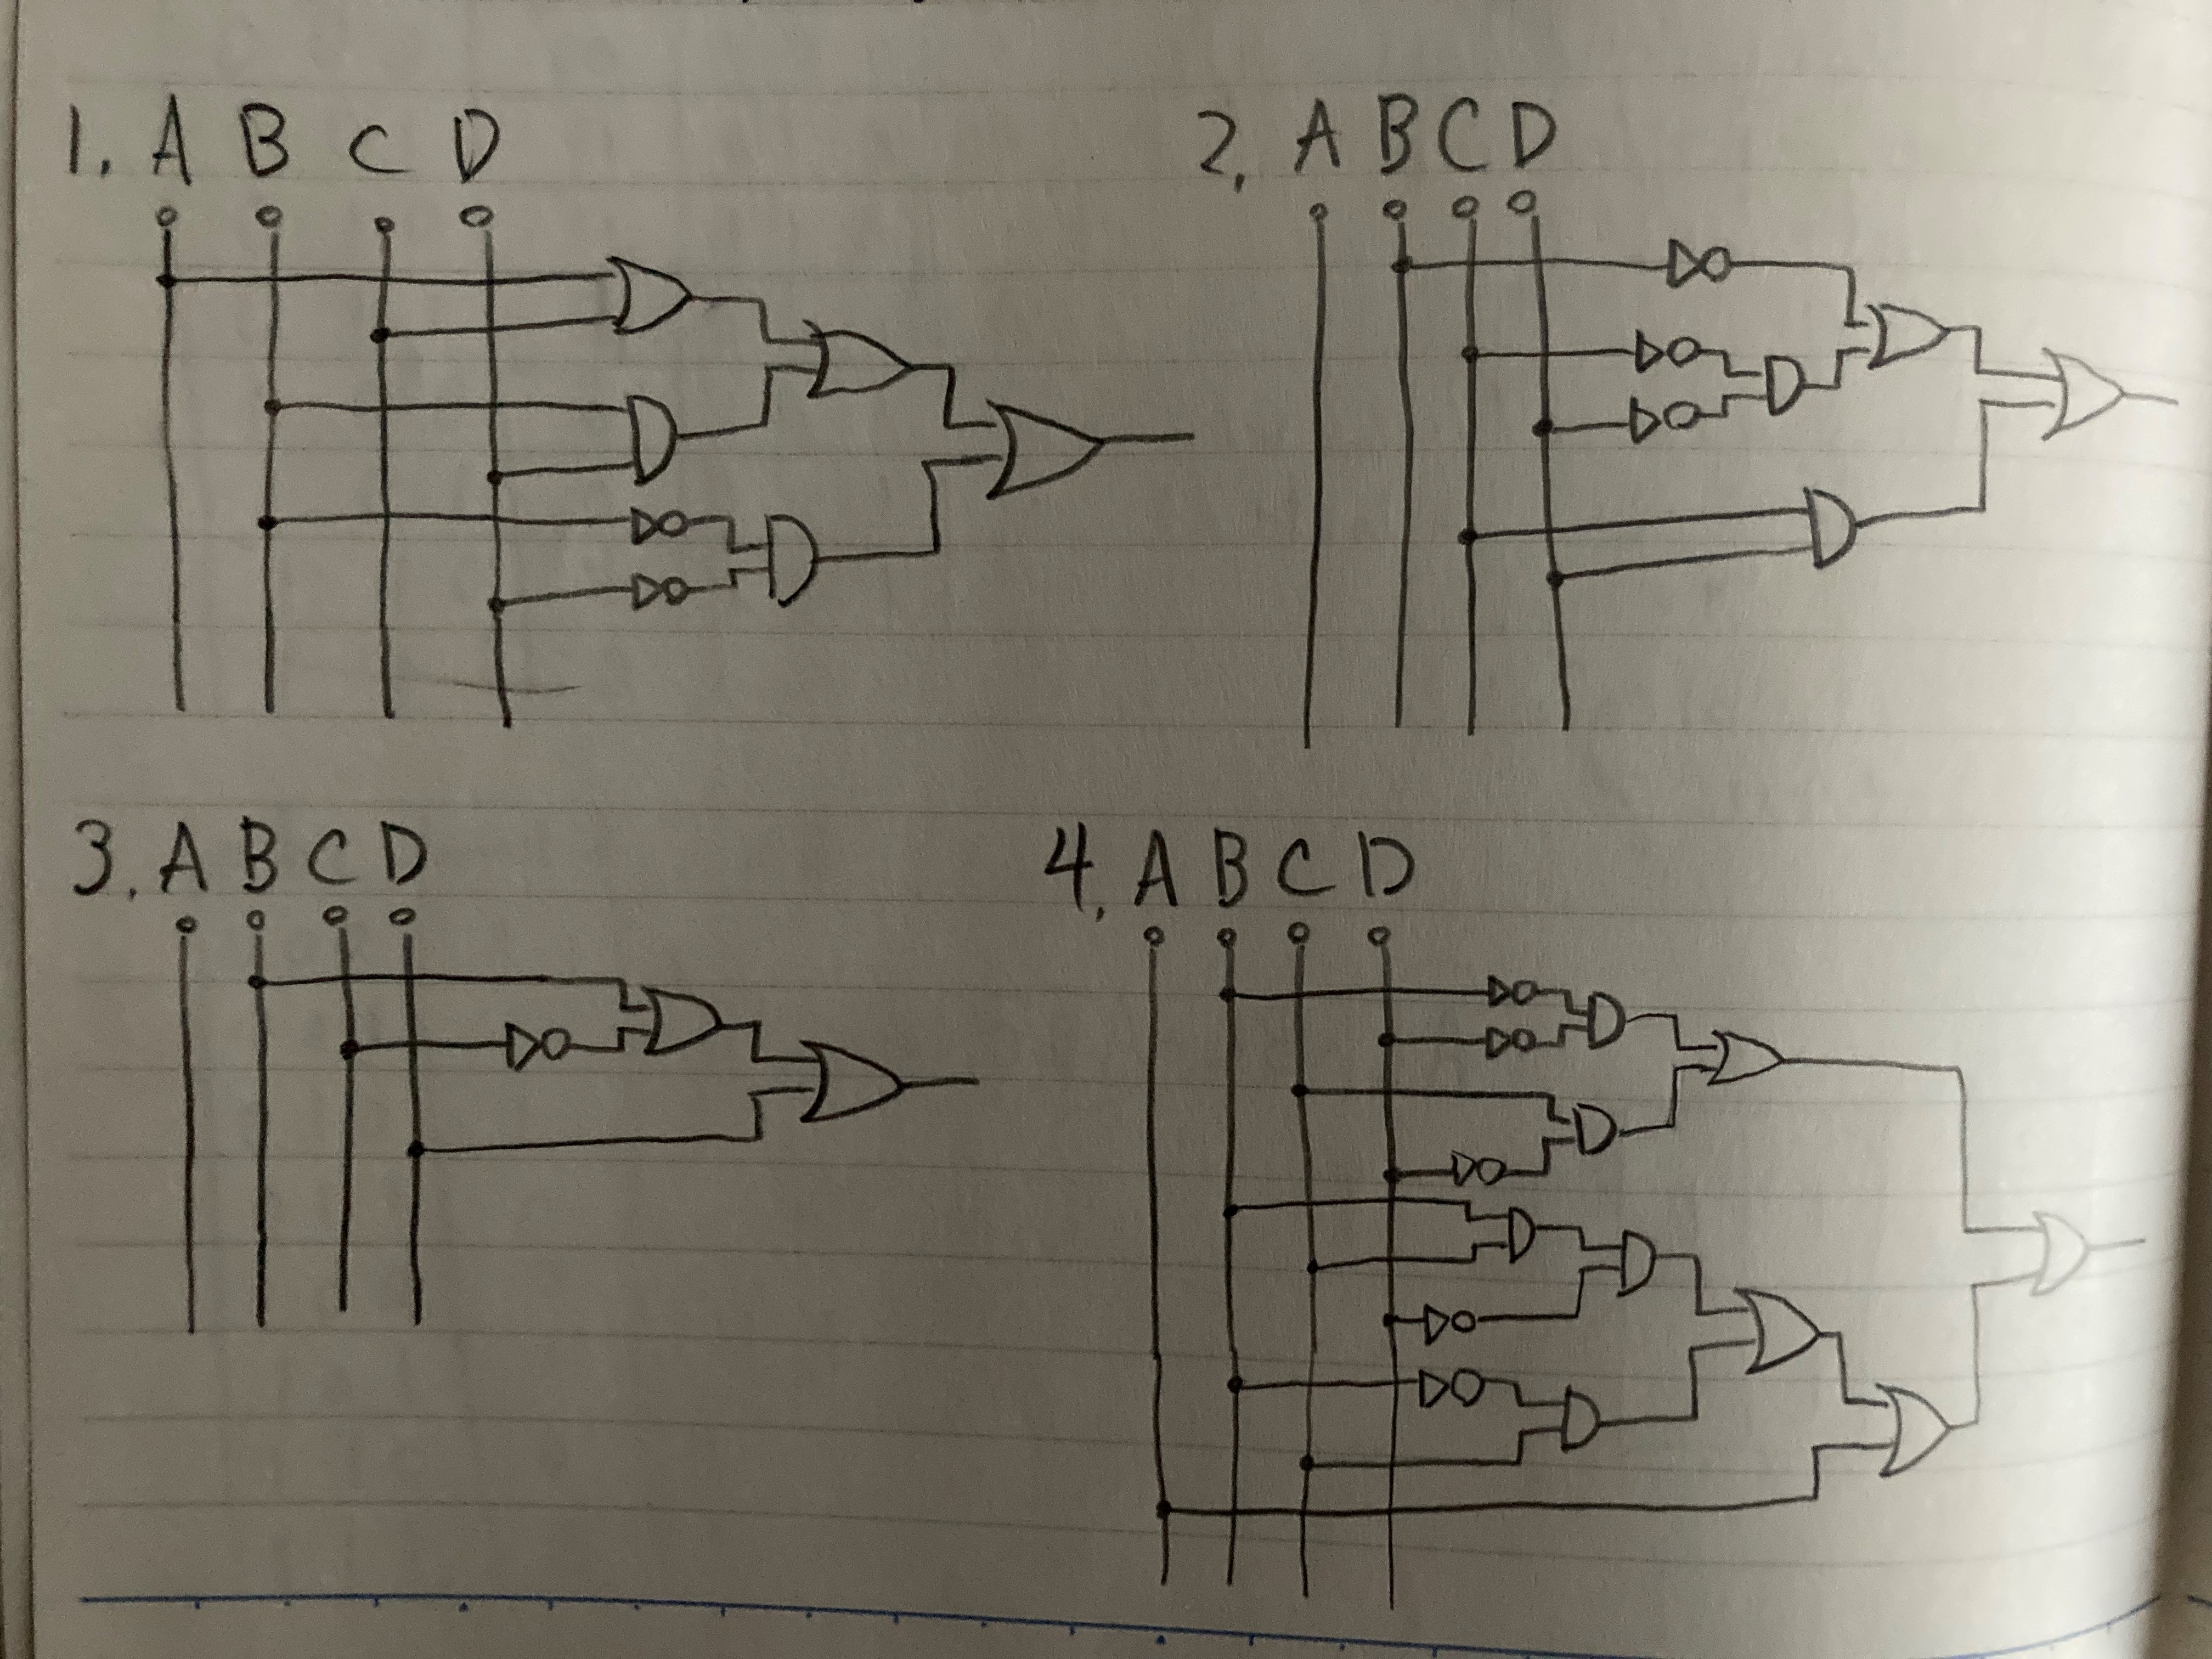 1. A B C D
2. A B C D
3. A B C D
4. A B C D